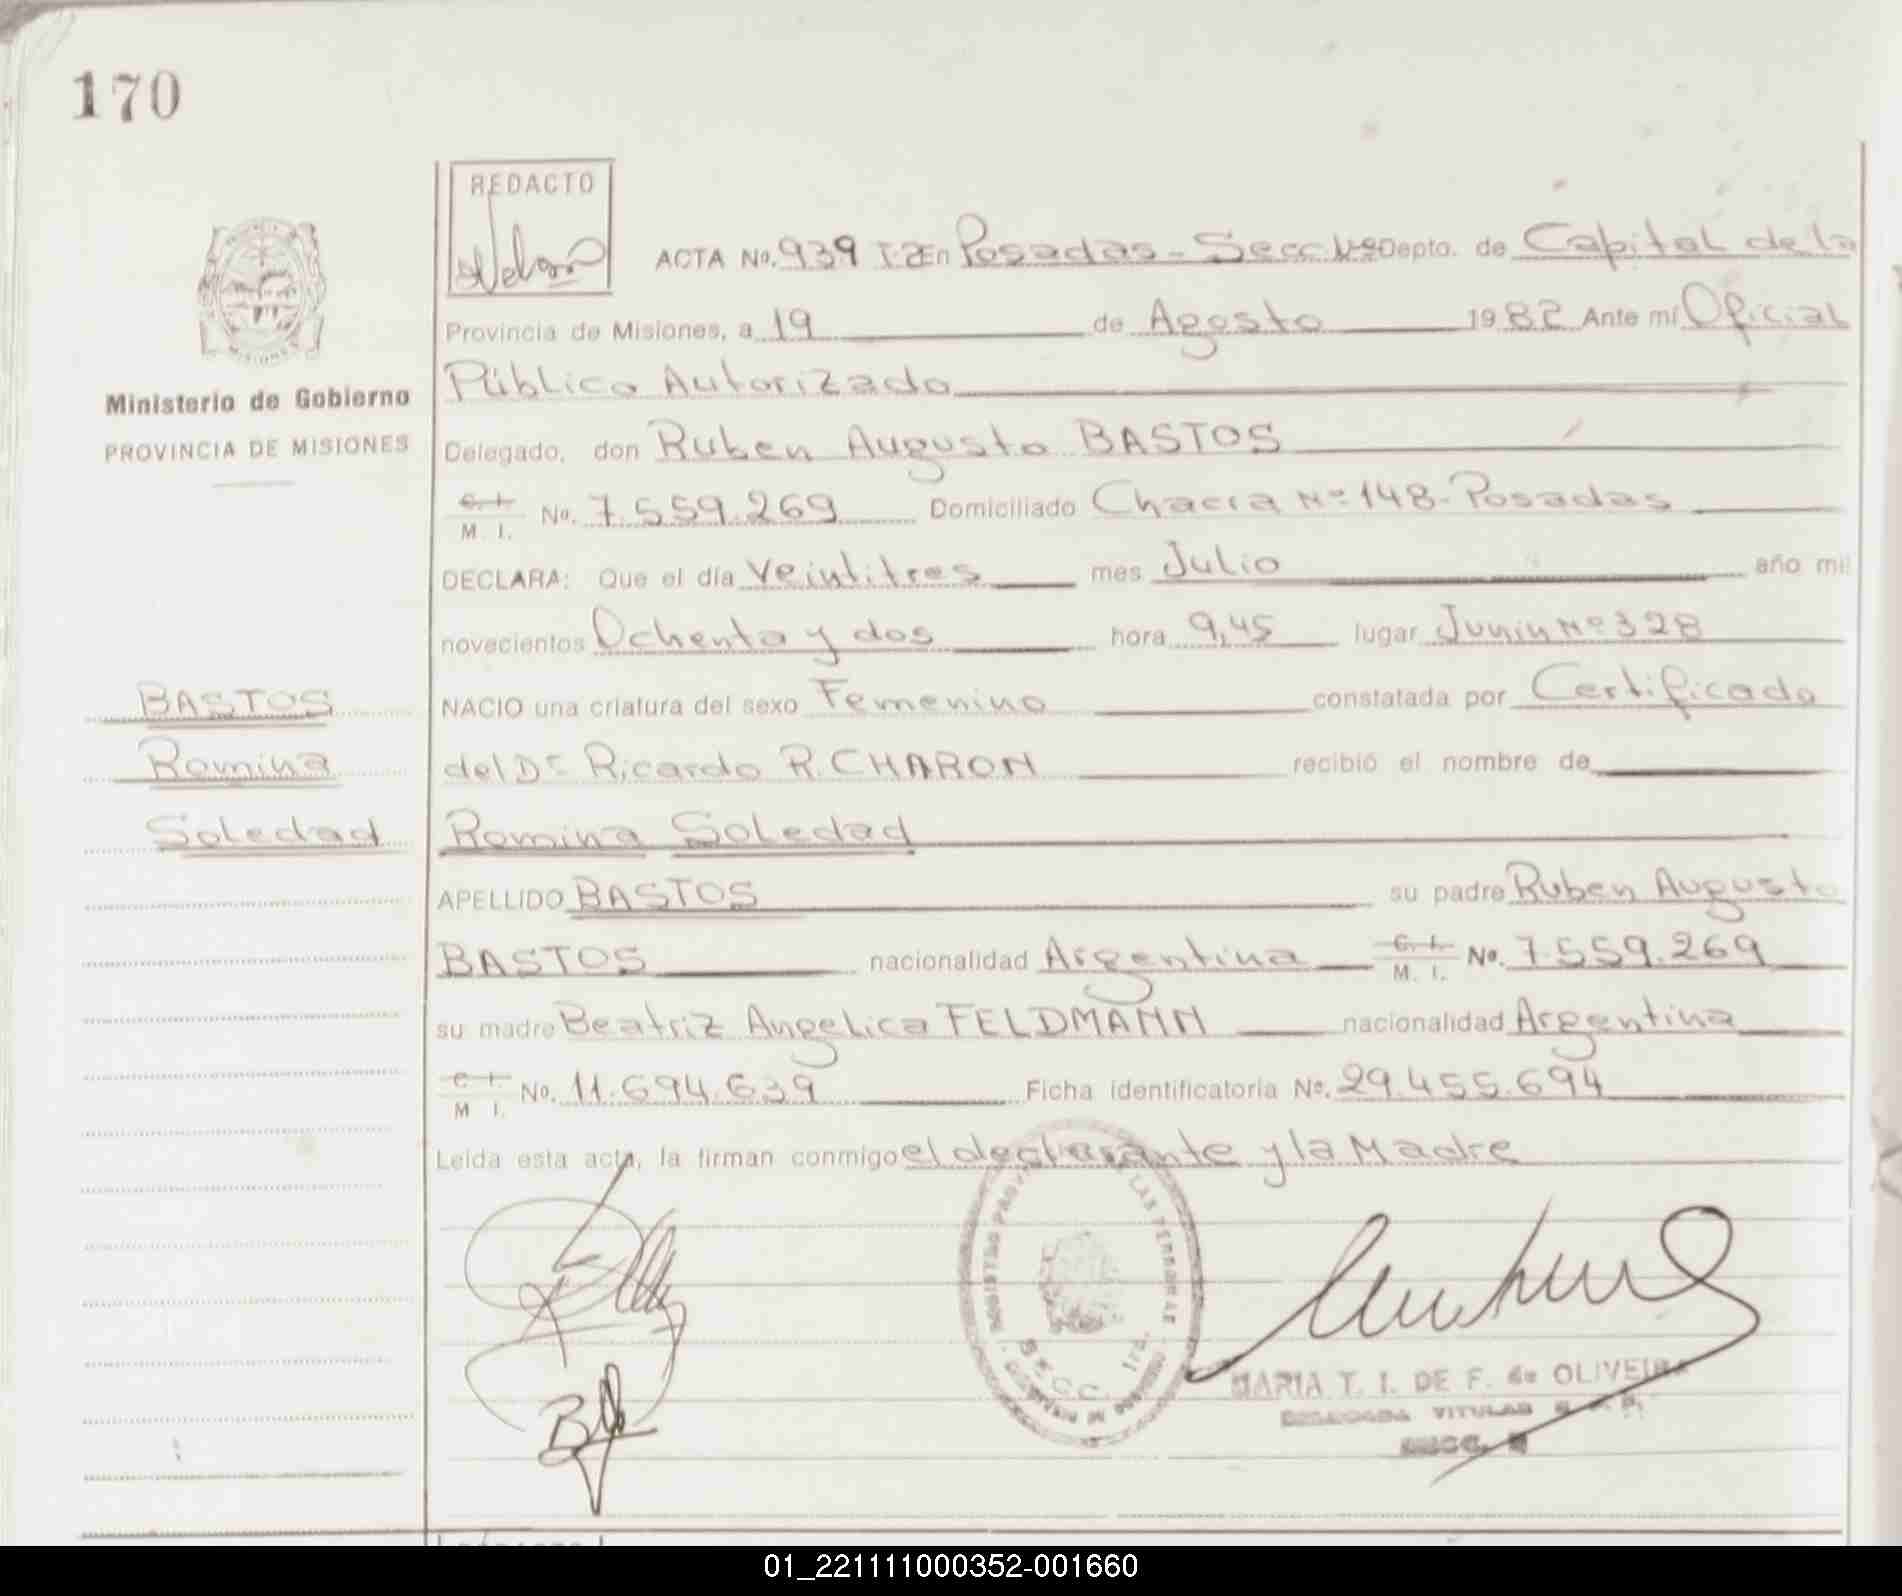 170
REDACTO
ACTA No. 939 T-2 En Posadas - Secc 1º Depto. de Capital de la
Provincia de Misiones, a 19 de Agosto 1982 Ante mí Oficial
Ministerio de Gobierno
PROVINCIA DE MISIONES
Público Autorizado
Delegado, don Ruben Augusto BASTOS
C. I. M. I. No. 7.559.269 Domiciliado Chacra Nº 148 - Posadas
DECLARA: Que el día Veintitres mes Julio año mil
novecientos Ochenta y dos hora 9,45 lugar Junin Nº 328
BASTOS
Romina
Soledad
NACIO una criatura del sexo Femenino constatada por Certificado
del Dr Ricardo R. CHARON recibió el nombre de
Romina Soledad
APELLIDO BASTOS su padre Ruben Augusto
BASTOS nacionalidad Argentina C. I. M. I. No. 7.559.269
su madre Beatriz Angelica FELDMANN nacionalidad Argentina
C. I. M I. No. 11.694.639 Ficha identificatoria No. 29.455.694
Leída esta acta, la firman conmigo el declarante y la Madre
SECC. 1ra.
MARIA T. I. DE F. de OLIVEIRA
01_221111000352-001660